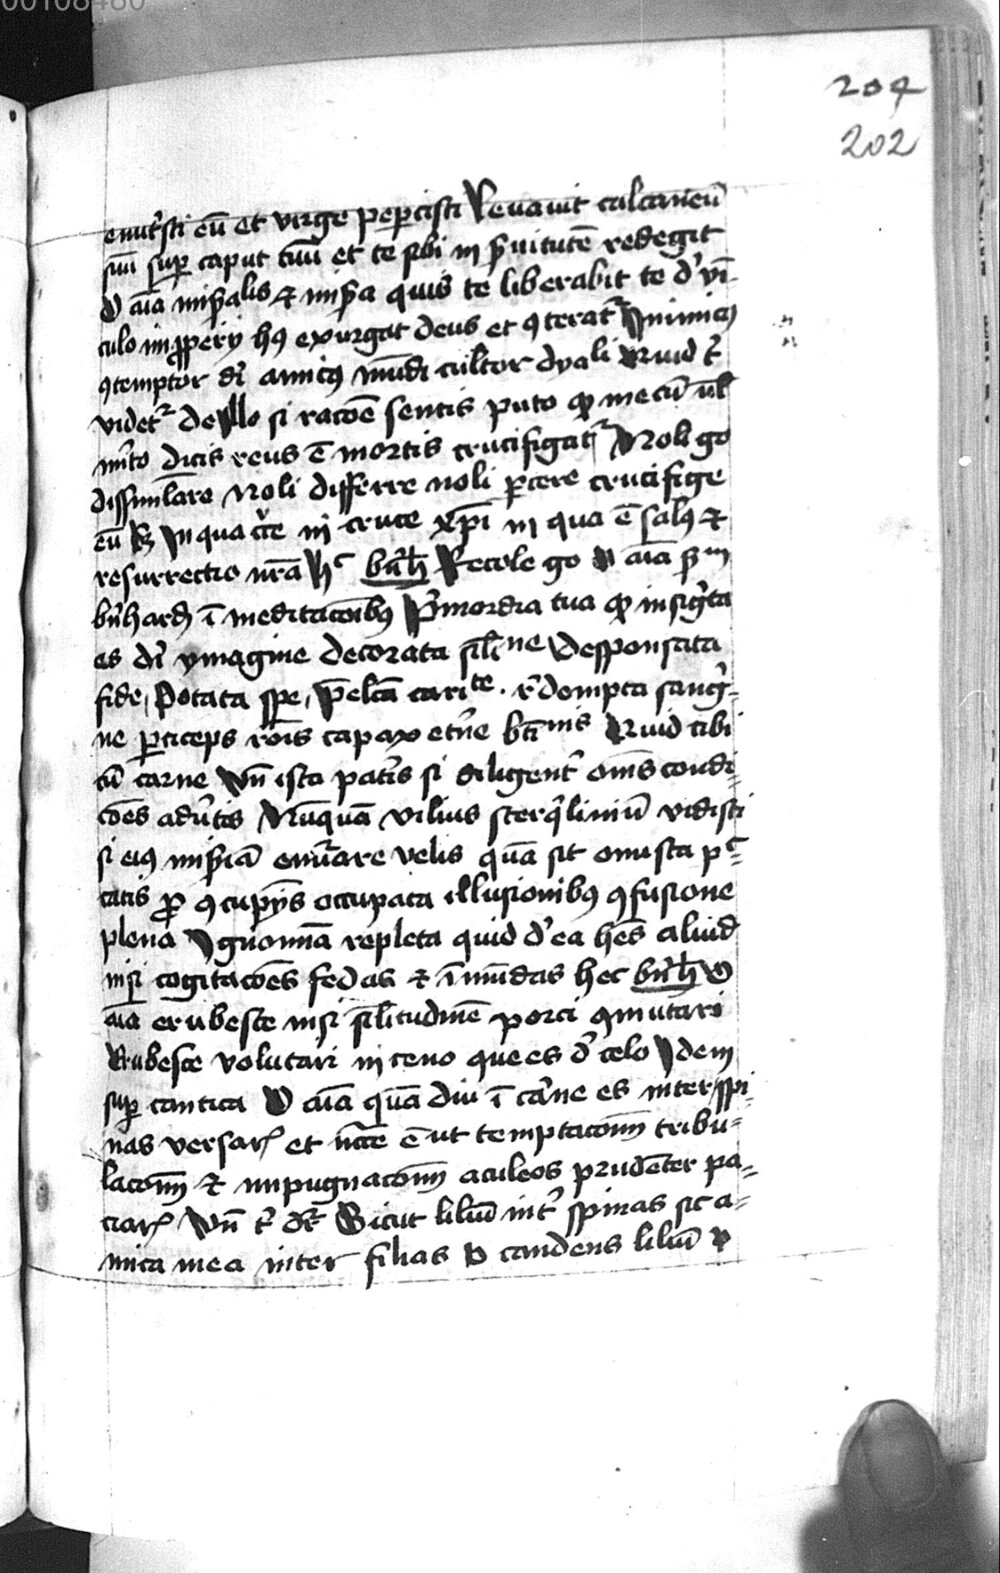 00108480
204
202
enut'sti eū et virge pepcisti Levavit calcaneū
suū sup caput tuū et te sibi in s'vitutē redegit
O aīa mis'alis et mis'a quis te liberabit te d' vī-
culo impperij h9 exurgat deus et 9terat' inimic9
9temptor di amic9 mūdi cultor dyali Quid t'
videt' de illo si racōē sentis puto qp mecū vl'
m'ito dicis reus ē mortis crucifigat' Noli go
dissimlare Noli differre noli pcere crucifige
eū in cruce xpī in qua ē sal9 et
resurrectio nrā Hc bn'h Recole go o aīa s'm
bn'hard ī meditacōib9 P'mordia tua qp insig'ta
es di ymagine decorata sil'ne desponsata
fide, Dotata spe, carite. r'dempta sang'-
ne pticeps rōis capax et'ne bt'nis Quid tibi
cū carne vn ista pat'is si diligent' oms condi-
cōes adu'tis Nūquā vilius sterq'liniū vidisti
si ei9 mis'iā enu'are velis quā sit onusta pc-
catis occupata illusionib9 9fusione
plena Ignomīa repleta quid d' ea hēs aliud
nisi cogitacōes fedas et īmūdas hec bn'h O
aīa erubesce nisi sil'itudinē porci 9mutari
Erubesce volutari in ceno que es d' celo Idem
sup cantica O aīa quā diu ī carne es inter spi-
nas versar' et ncē ē ut temptacōm tribu-
lacōm et impugnacōm aculeos prudēter pa-
ciar' Vn t' dr' Sicut liliū int' spinas sic a-
mica mea inter filias O candens liliū o